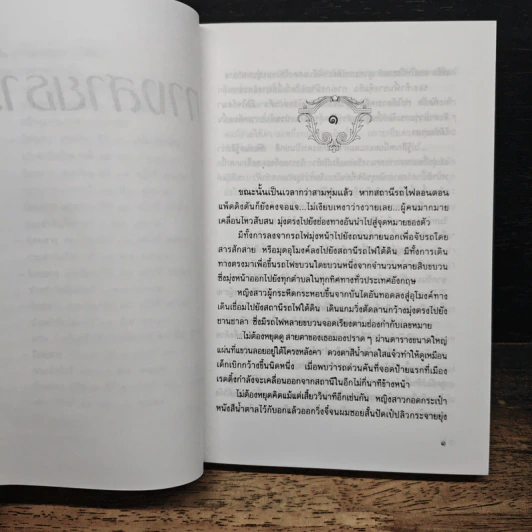 ๑
ขณะนั้นเป็นเวลากว่าสามทุ่มแล้ว หากสถานีรถไฟลอนดอน
แพ็ดดิงตันก็ยังคงจอแจ...ไม่เงียบเหงาว่างวายเลย...ผู้คนมากมาย
เคลื่อนไหวสับสน มุ่งตรงไปยังช่องทางอันนำไปสู่จุดหมายของตัว
มีทั้งการลงจากรถไฟมุ่งหน้าไปยังถนนภายนอกเพื่อจับรถโดย
สารสักสาย หรือมุดอุโมงค์ลงไปยังสถานีรถไฟใต้ดิน มีทั้งการเดิน
ทางตรงมาเพื่อขึ้นรถไฟขบวนใดขบวนหนึ่งจากจำนวนหลายสิบขบวน
ซึ่งมุ่งหน้าออกไปยังทุกตำบลในทุกทิศทางทั่วประเทศอังกฤษ
หญิงสาวผู้กระหืดกระหอบขึ้นจากบันไดอันทอดลงสู่อุโมงค์ทาง
เดินเชื่อมไปยังสถานีรถไฟใต้ดิน เดินแกมวิ่งตัดลานกว้างมุ่งตรงไปยัง
ชานชาลา ซึ่งมีรถไฟหลายขบวนจอดเรียงตามช่องกำกับเลขหมาย
...ไม่ต้องหยุดดู สายตาของเธอมองปราด ๆ ผ่านตารางขนาดใหญ่
แผ่นที่แขวนลอยอยู่ใต้โครงหลังคา ดวงตาสีน้ำตาลใสแจ๋วทำให้ดูเหมือน
เด็กเบิกกว้างขึ้นนิดหนึ่ง เมื่อพบว่ารถด่วนคันที่จอดป้ายแรกที่เมือง
เรดดิ้งกำลังจะเคลื่อนออกจากสถานีในอีกไม่กี่นาทีข้างหน้า
ไม่ต้องหยุดคิดแม้แต่เสี้ยววินาทีอีกเช่นกัน หญิงสาวกอดกระเป๋า
หนังสีน้ำตาลไว้กับอกแล้วออกวิ่งจี๋จนผมซอยสั้นปัดเป๋ปลิวกระจายยุ่ง
๑